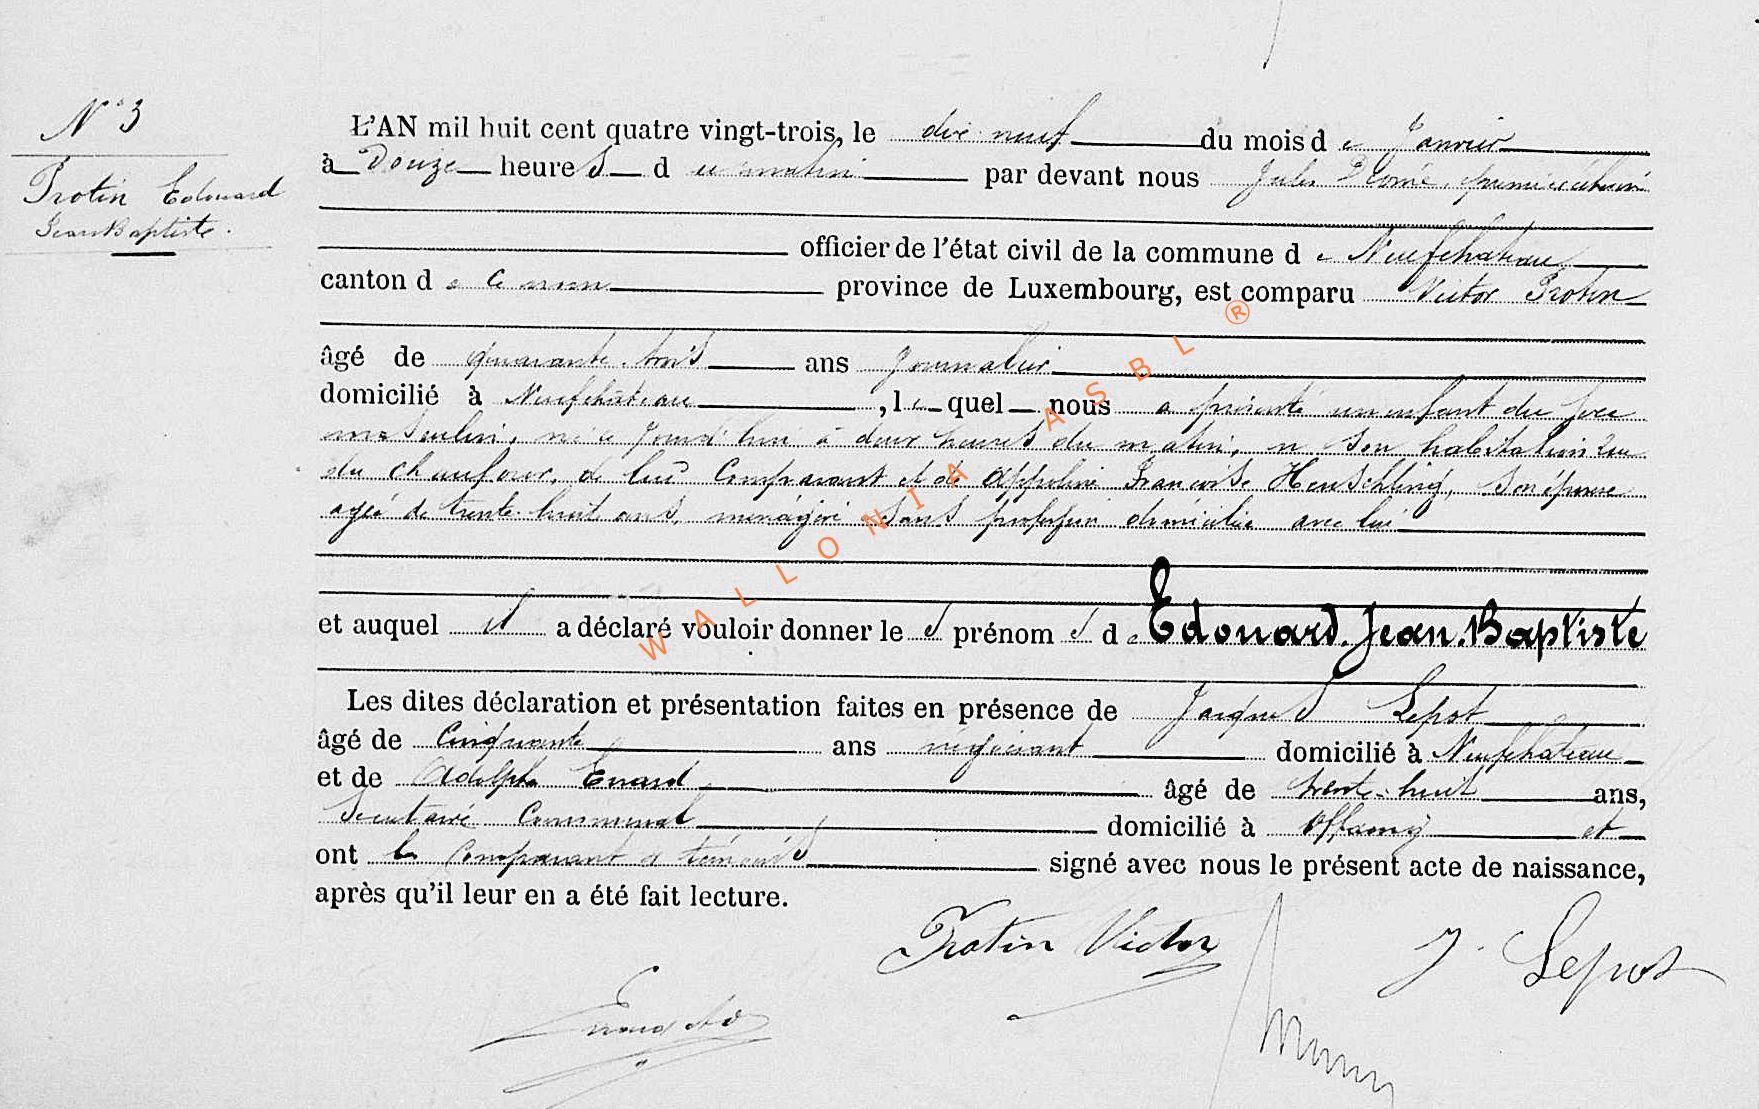 N° 3
Protin Edouard
Jean Baptiste.
L'AN mil huit cent quatre vingt-trois, le dix neuf du mois de Janvier
à Douze heures du matin par devant nous Jules premier échevin
officier de l'état civil de la commune de Neufchateau
canton de ce nom province de Luxembourg, est comparu Victor Protin
âgé de quarante trois ans Journalier
domicilié à Neufchâteau, lequel nous a présenté un enfant du sexe
masculin, né aujourd'hui à deux heures du matin, en son habitation rue
du chaufour, de lui Comparant et de Appoline Françoise Henschling, son épouse
agée de trente huit ans, ménagère sans profession domiciliée avec lui
et auquel il a déclaré vouloir donner les prénoms de Edouard. Jean. Baptiste
Les dites déclaration et présentation faites en présence de Jacques Lepot
âgé de Cinquante ans négociant domicilié à Neufchateau
et de Adolphe Evrard âgé de trente-huit ans,
Secrétaire Communal domicilié à Offaing et
ont le Comparant et témoins signé avec nous le présent acte de naissance,
après qu'il leur en a été fait lecture.
Protin Victor
J. Lepot
WALLONIA ASBL ®